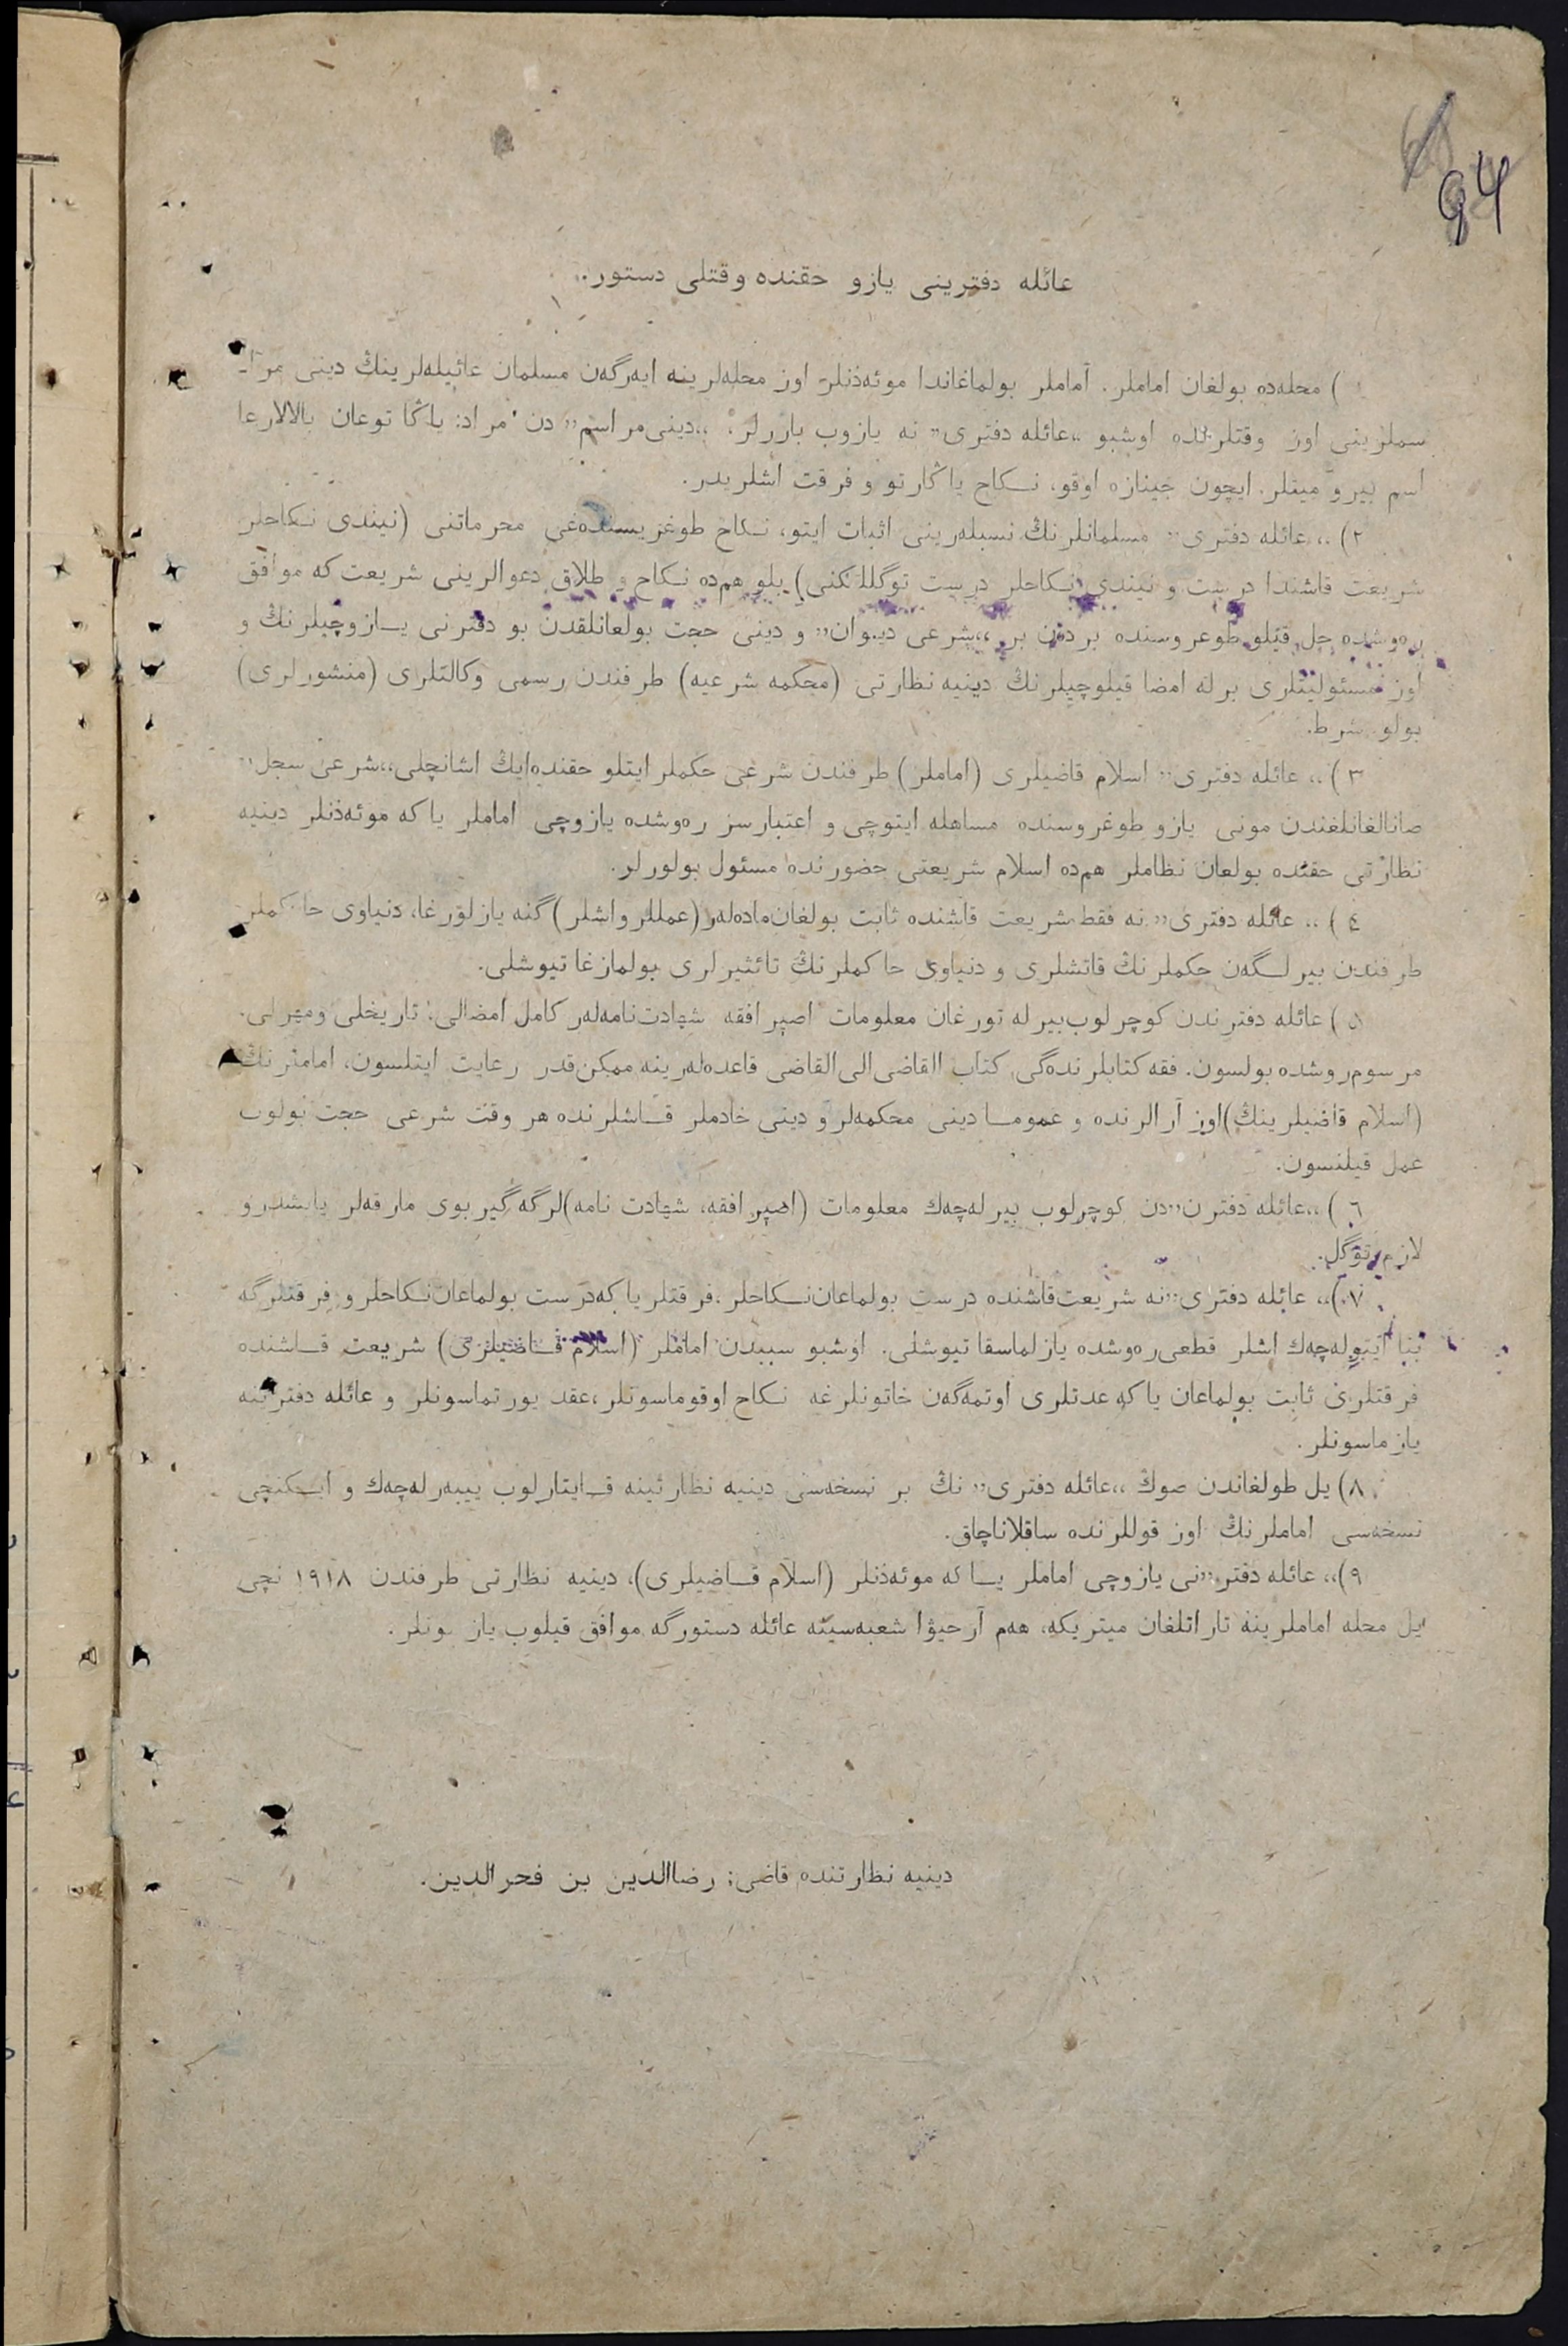 94
عائله دفترينى يازو حقنده وقتلى دستور.
١) محله‌ده بولغان اماملر. آماملر بولماغاندا موئه‌ذنلر اوز محله‌لرينه ايه‌رگه‌ن مسلمان عائيله‌لرينڭ دينى مرا-
سملرينى اوز وقتلرنده اوشبو „عائله دفترى” نه يازوب باررلر، „دينى مراسم” دن مراد: ياڭا توعان بالالارعا
اسم بيرو ميتلر ايچون جينازه اوقو، نـكاح ياڭارتو و فرقت اشلريدر.
٢) „عائله دفترى” مسلمانلرنڭ نسبله‌رينى اثبات ايتو، نـكاح طوغريسنده‌غى محرماتنى (نيندى نـكاحلر
شريعت قاشندا درست و نيندى نـكاحلر درست توگللكنى) بلو هم‌ده نـكاح و طلاق دعوالرينى شريعت كه موافق
ره‌وشده حل قيلو طوعروسنده بردن بر „شرعى ديوان” و دينى حجت بولعانلقدن بو دفترنى يـازوچيلرنڭ و
اوز مسئوليتلرى برله امضا قيلوچيلرنڭ دينيه نظارتى (محكمه شرعيه) طرفندن رسمى وكالتلرى (منشورلرى)
بولو شرط.
٣) „عائله دفترى” اسلام قاضيلرى (اماملر) طرفندن شرعى حكملر ايتلو حقنده ايڭ اشانچلى „شرعى سجل”
صانالغانلغندن مونى يازو طوغروسنده مساهله ايتوچى و اعتبارسز ره‌وشده يازوچى اماملر ياكه موئه‌ذنلر دينيه
نظارتى حقنده بولعان نظاملر هم‌ده اسلام شريعتى حضورنده مسئول بولورلر.
٤) „عائله دفترى” نه فقط شريعت قاشنده ثابت بولغان ماده‌لەر (عمللر واشلر) گنه يازلورغا، دنياوى حاكملر
طرفندن بيرلـگه‌ن حكملرنڭ قاتشلرى و دنياوى حاكملرنڭ تائثيرلرى بولمازغا تيوشلى.
٥) عائله دفترندن كوچرلوب بيرله تورغان معلومات اصپرافقه شهادت‌نامه‌لەر كامل امضالى، تاريخلى ومهرلى.
مرسوم روشده بولسون. فقه كتابلرنده‌گى كتاب االقاضى الى القاضى قاعده‌لەرينه ممكن قدر رعايت ايتلسون، اماملرنڭ
(اسلام قاضيلرينڭ) اوز آرالرنده و عمومـا دينى محكمه‌لر و دينى خادملر قـاشلرنده هر وقت شرعى حجت بولوب
عمل قيلنسون.
٦) „عائله دفترن” دن كوچرلوب بيرله‌چه‌ك معلومات (اصپرافقه، شهادت نامه) لرگه گيربوى مارقه‌لر يابشدرو
لازم توگل.
٧) „عائله دفترى” نه شريعت قاشنده درست بولماعان نـكاحلر، فرقتلر ياكه درست بولماعان نـكاحلر و فرقتلرگه
بنا ايتوله‌چه‌ك اشلر قطعى ره‌وشده يازلماسقا تيوشلى. اوشبو سببدن اماملر (اسلام قـاضيلرى) شريعت قـاشنده
فرقتلرى ثابت بولماعان ياكه عدتلرى اوتمه‌گه‌ن خاتونلرغه نـكاح اوقوماسونلر، عقد يورتماسونلر و عائله دفترينه
يازماسونلر.
٨) يل طولغاندن صوڭ „عائله دفترى” نڭ بر نسخه‌سى دينيه نظارتينه قـايتارلوب ييبه‌رله‌چه‌ك و ايـكنچى
نسخه‌سى اماملرنڭ اوز قوللرنده ساقلاناچاق.
٩) „عائله دفتر” نى يازوچى اماملر يـاكه موئه‌ذنلر (اسلام قـاضيلرى)، دينيه نظارتى طرفندن ١٩١٨ نچى
يل محله اماملرينه تاراتلغان ميتريكه، هه‌م آرحيۋا شعبه‌سينه عائله دستورگه موافق قيلوب يازسونلر.
دينيه نظارتنده قاضى; رضاالدين بن فخرالدين.